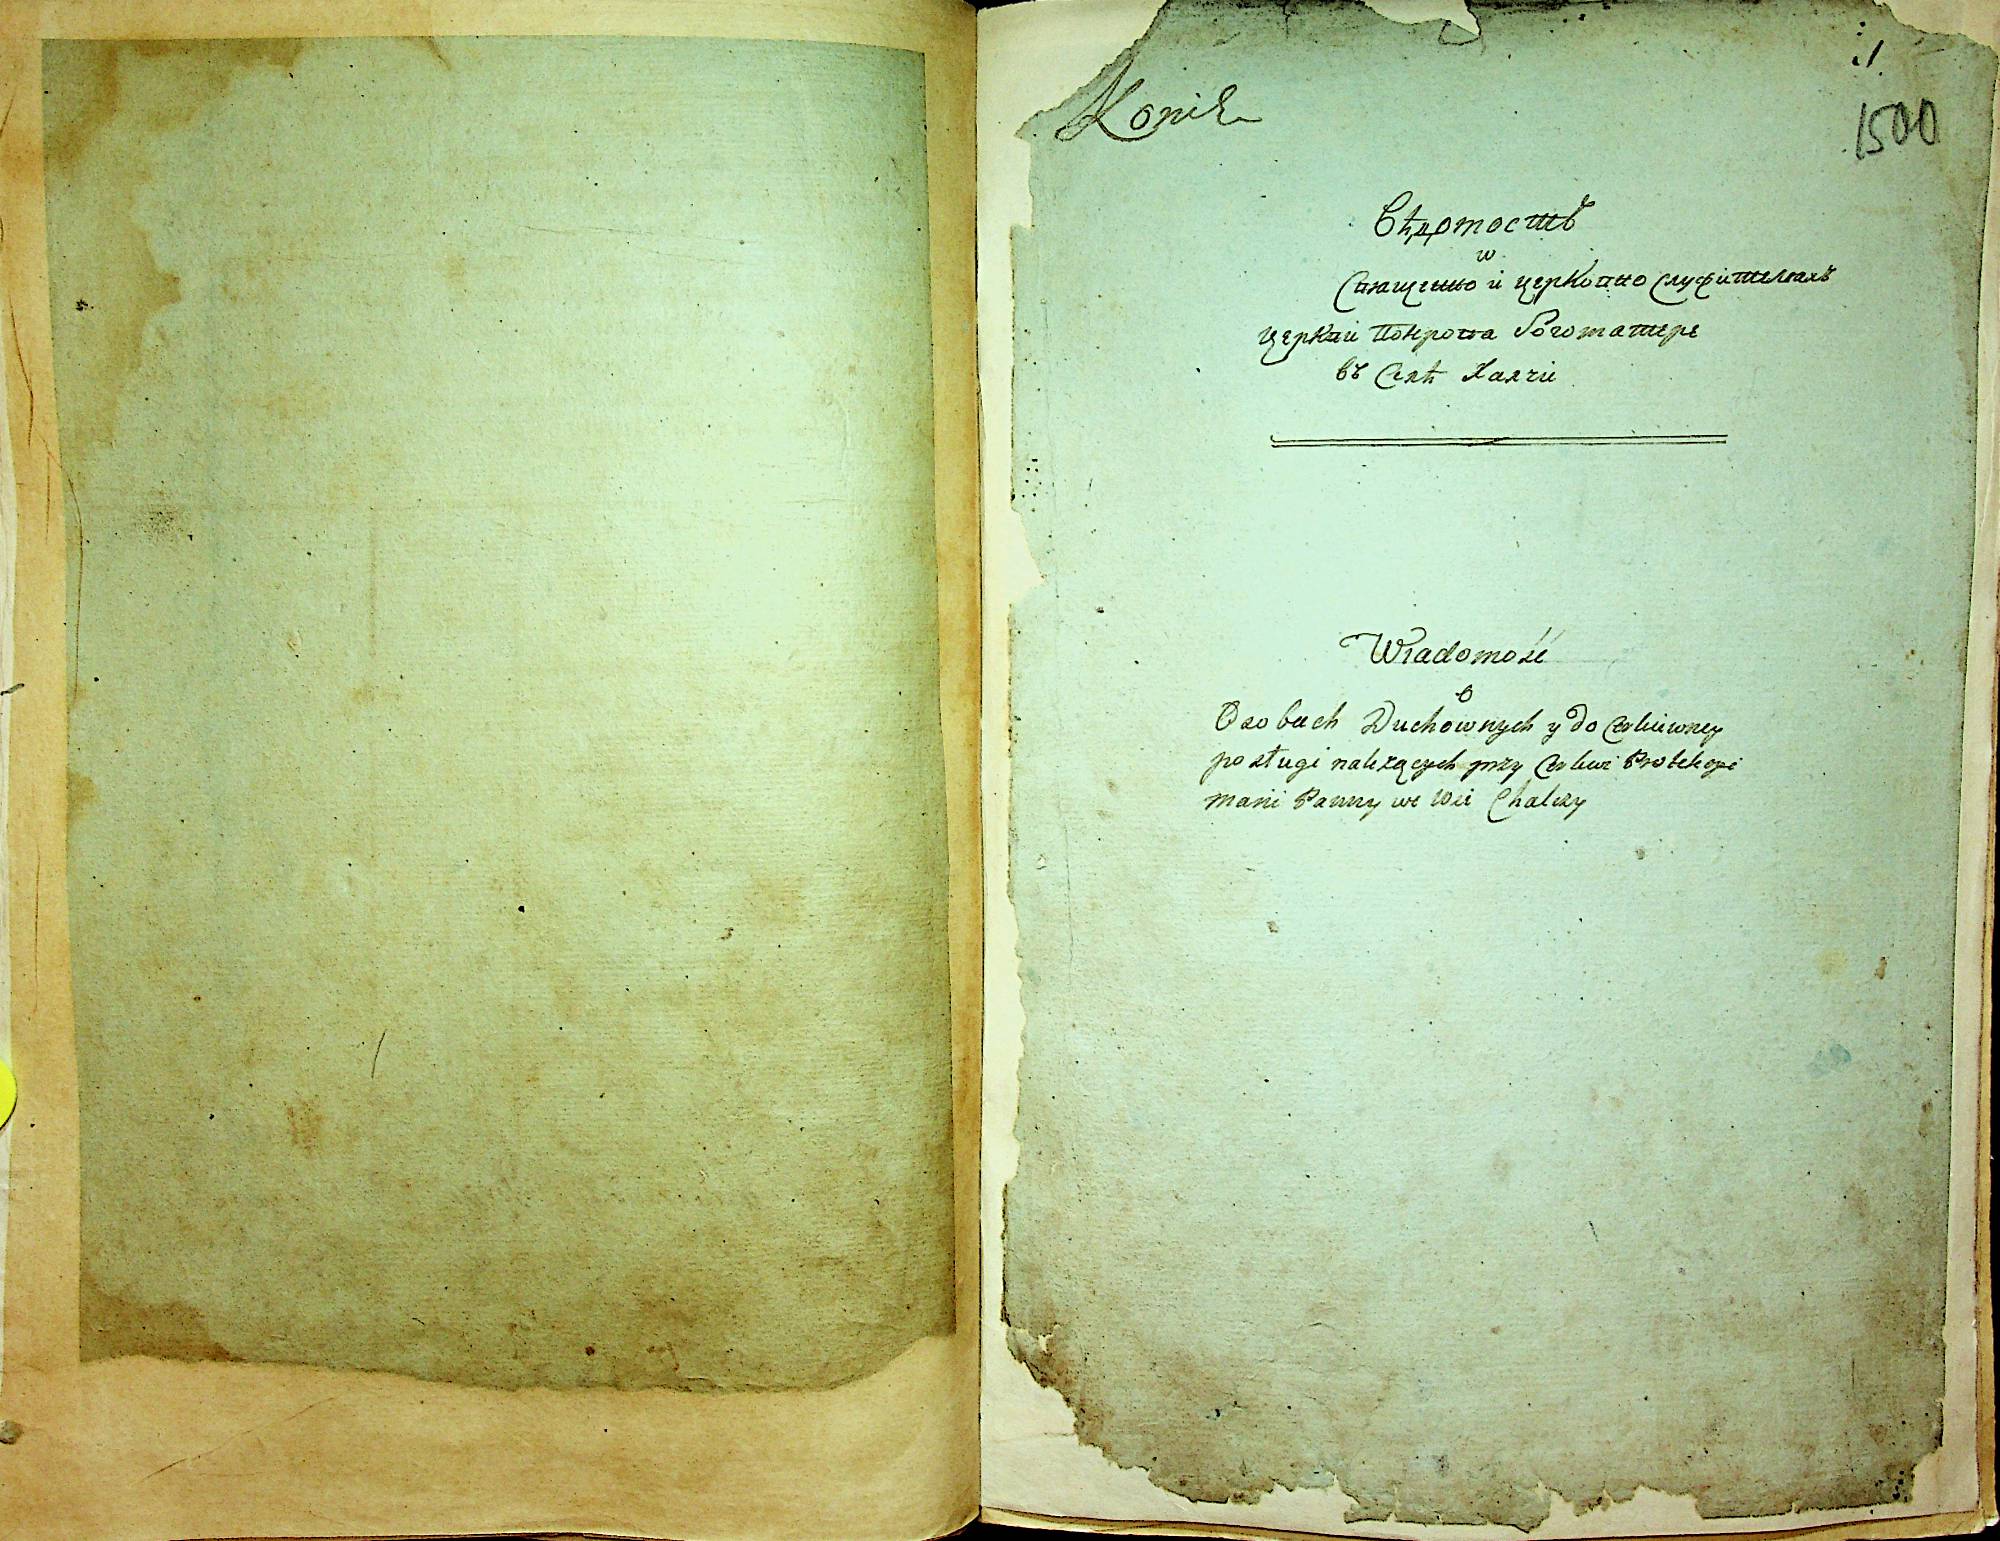 Копiя
1
1500
Вѣдомость
w
Священно и церковно служителяхъ
церкви Покрова Богоматере
въ Селѣ Халчи
Wiadomość
o
Osobach Duchownych y do Cerkiewney
posługi należących przy Cerkwi Protekcyi
Marii Panny we Wsi Chalczy